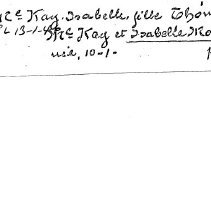 Mc Kay. Isabelle, fille Thom
13-1- Mc Kay et Isabelle Mo
née, 10-1-